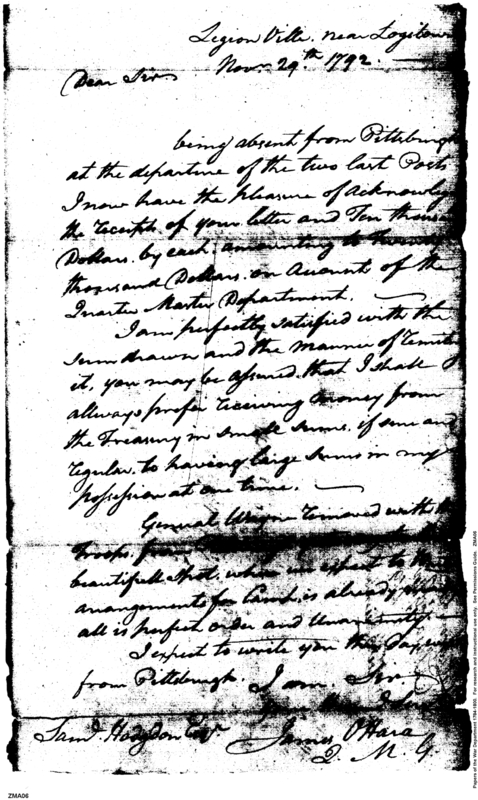 Legion Ville. near Logstown
Novr. 29th. 1792.
Dear Sir
being absent from Pittsburgh
at the departure of the two last Posts
I now have the pleasure of Acknowleg
the Receipts of your letter and Ten thousand
Dollars. by each, amounting to Twenty
thousand Dollars. on Account of the
Quarter Master Department.
I am perfectly satisfied with the
sum drawn and the manner of Remitting
it, you may be assured, that I shall
allways prefer Receiving money from
the Treasury in small sums, if sure and
Regular. to having large sums in my
possession at one time.
General Wayne Removed with the
Troops, from
beautifull spot, where we expect to
arrangements for Camp, is already
all is perfect order and Unanimity
I expect to write you this day week
from Pittsburgh. I am. Sir
Saml. Hodgdon Esqr. James O'Hara
Q. M. G.
Papers of the War Department 1784-1800. For research and instructional use only. See Permissions Guide. ZMA06
ZMA06